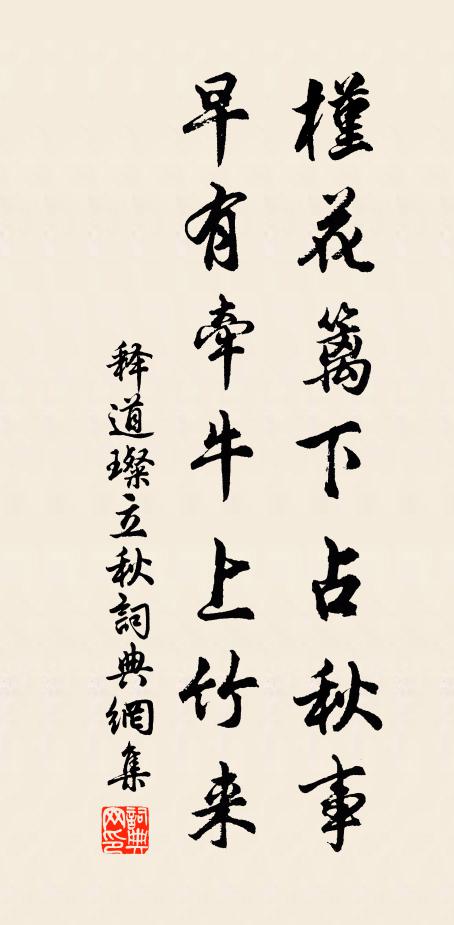 槿花篱下占秋事
早有牵牛上竹来
释道璨立秋詞典網集
詞典网印